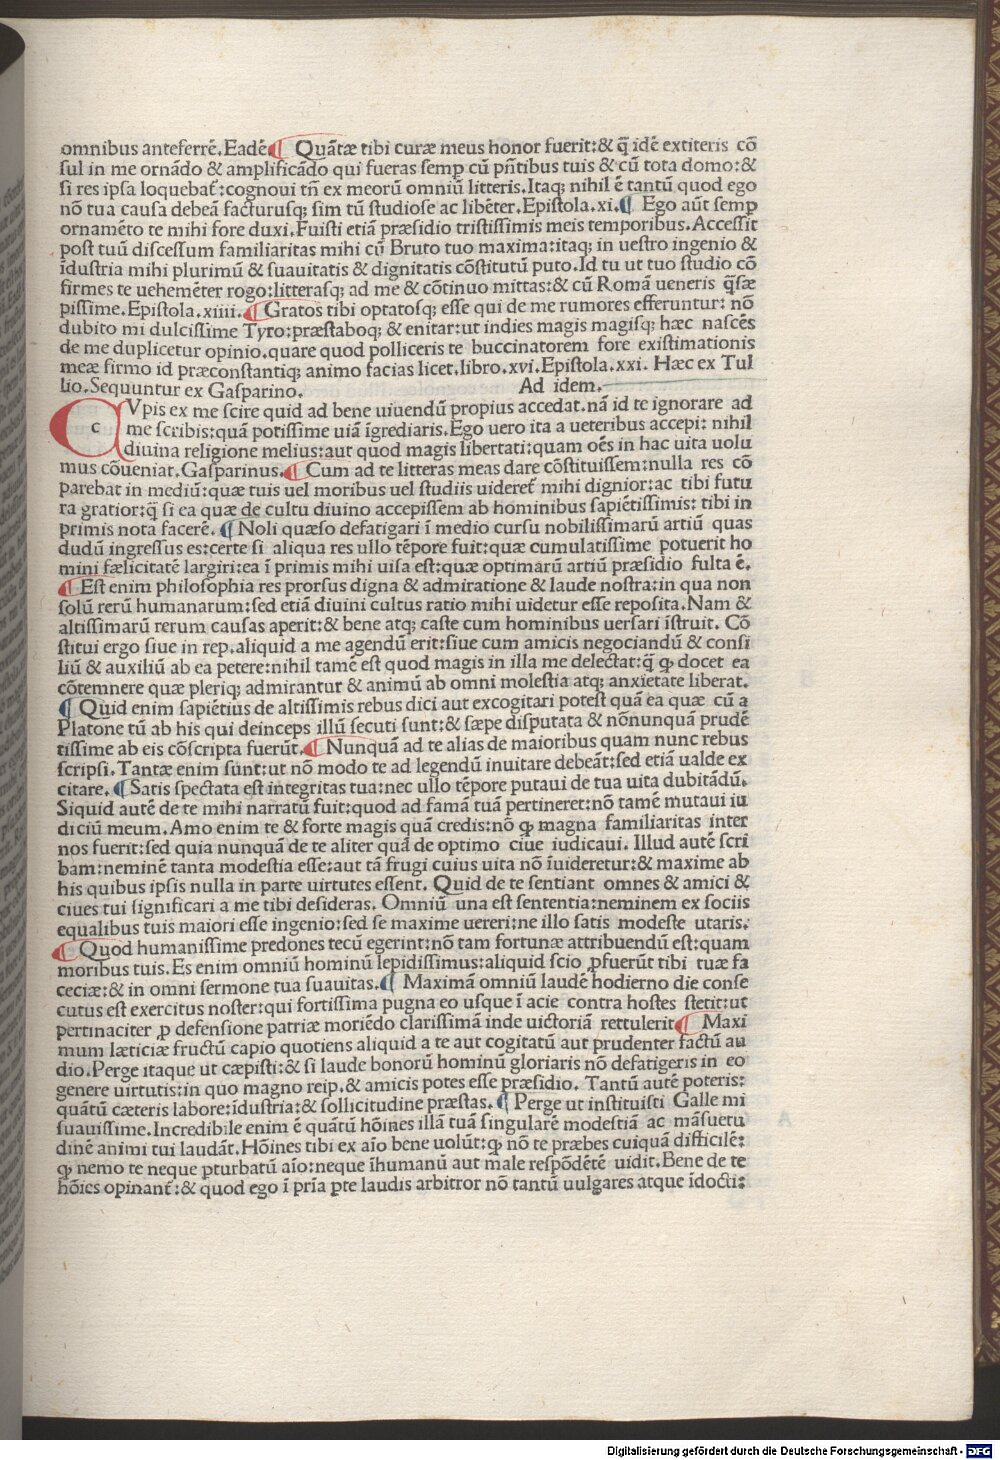 omnibus anteferrē.Eadē¶ Quātæ tibi curæ meus honor fuerit:& q̄ idē extiteris cō
ſul in me ornādo & amplificādo qui fueras ſemp cū pn̄tibus tuis & cū tota domo:&
ſi res ipſa loquebat̄:cognoui tn̄ ex meorū omniū litteris.Itaq; nihil ē tantū quod ego
nō tua cauſa debeā facturuſq; ſim tū ſtudioſe ac libēter.Epiſtola.xi.¶ Ego aūt ſemp
ornamēto te mihi fore duxi.Fuiſti etiā præſidio triſtiſſimis meis temporibus.Acceſſit
poſt tuū diſceſſum familiaritas mihi cū Bruto tuo maxima:itaq; in ueſtro ingenio &
īduſtria mihi plurimū & ſuauitatis & dignitatis cōſtitutū puto.Id tu ut tuo ſtudio cō
firmes te uehemēter rogo:litteraſq; ad me & cōtinuo mittas:& cū Romā ueneris q̄ſæ
piſſime.Epiſtola.xiiii.¶ Gratos tibi optatoſq; eſſe qui de me rumores efferuntur: nō
dubito mi dulciſſime Tyro:præſtaboq; & enitar:ut indies magis magiſq; hæc naſcēs
de me duplicetur opinio.quare quod polliceris te buccinatorem fore exiſtimationis
meæ firmo id præconſtantiq; animo facias licet.libro.xvi.Epiſtola.xxi. Hæc ex Tul
lio.Sequuntur ex Gaſparino. Ad idem.
CVpis ex me ſcire quid ad bene uiuendū propius accedat.nā id te ignorare ad
me ſcribis:quā potiſſime uiā īgrediaris.Ego uero ita a ueteribus accepi: nihil
diuina religione melius:aut quod magis libertati:quam oēs in hac uita uolu
mus cōueniat.Gaſparinus.¶ Cum ad te litteras meas dare cōſtituiſſem:nulla res cō
parebat in mediū:quæ tuis uel moribus uel ſtudiis uideret̄ mihi dignior:ac tibi futu
ra gratior:q̄ ſi ea quæ de cultu diuino accepiſſem ab hominibus ſapiētiſſimis: tibi in
primis nota facerē. ¶ Noli quæſo defatigari ī medio curſu nobiliſſimarū artiū quas
dudū ingreſſus es:certe ſi aliqua res ullo tēpore fuit:quæ cumulatiſſime potuerit ho
mini fælicitatē largiri:ea ī primis mihi uiſa eſt:quæ optimarū artiū præſidio fulta ē.
¶ Eſt enim philoſophia res prorſus digna & admiratione & laude noſtra:in qua non
ſolū rerū humanarum:ſed etiā diuini cultus ratio mihi uidetur eſſe repoſita.Nam &
altiſſimarū rerum cauſas aperit:& bene atq; caſte cum hominibus uerſari īſtruit. Cō
ſtitui ergo ſiue in rep.aliquid a me agendū erit:ſiue cum amicis negociandū & conſi
liū & auxiliū ab ea petere:nihil tamē eſt quod magis in illa me delectat:q̄ ꝙ docet ea
cōtemnere quæ pleriq; admirantur & animū ab omni moleſtia atq; anxietate liberat.
¶ Quid enim ſapiētius de altiſſimis rebus dici aut excogitari poteſt quā ea quæ cū a
Platone tū ab his qui deinceps illū ſecuti ſunt:& ſæpe diſputata & nōnunquā prudē
tiſſime ab eis cōſcripta fuerūt.¶ Nunquā ad te alias de maioribus quam nunc rebus
ſcripſi.Tantæ enim ſunt:ut nō modo te ad legendū inuitare debeāt:ſed etiā ualde ex
citare.¶ Satis ſpectata eſt integritas tua:nec ullo tēpore putaui de tua uita dubitādū.
Siquid autē de te mihi narratū fuit:quod ad famā tuā pertineret:nō tamē mutaui iu
diciū meum.Amo enim te & forte magis quā credis:nō ꝙ magna familiaritas inter
nos fuerit:ſed quia nunquā de te aliter quā de optimo ciue iudicaui. Illud autē ſcri
bam:neminē tanta modeſtia eſſe:aut tā frugi cuius uita nō īuideretur:& maxime ab
his quibus ipſis nulla in parte uirtutes eſſent. Quid de te ſentiant omnes & amici &
ciues tui ſignificari a me tibi deſideras. Omniū una eſt ſententia:neminem ex ſociis
equalibus tuis maiori eſſe ingenio:ſed ſe maxime uereri:ne illo ſatis modeſte utaris.
¶ Quod humaniſſime predones tecū egerint:nō tam fortunæ attribuendū eſt:quam
moribus tuis. Es enim omniū hominū lepidiſſimus:aliquid ſcio ꝓfuerūt tibi tuæ fa
ceciæ:& in omni ſermone tua ſuauitas.¶ Maximā omniū laudē hodierno die conſe
cutus eſt exercitus noſter:qui fortiſſima pugna eo uſque ī acie contra hoſtes ſtetit:ut
pertinaciter ꝓ defenſione patriæ moriēdo clariſſimā inde uictoriā rettulerit¶ Maxi
mum læticiæ fructū capio quotiens aliquid a te aut cogitatū aut prudenter factū au
dio.Perge itaque ut cæpiſti:& ſi laude bonorū hominū gloriaris nō defatigeris in eo
genere uirtutis:in quo magno reip.& amicis potes eſſe præſidio. Tantū autē poteris:
quātū cæteris labore:īduſtria:& ſollicitudine præſtas.¶ Perge ut inſtituiſti Galle mi
ſuauiſſime.Incredibile enim ē quātū hōines illā tuā ſingularē modeſtiā ac māſuetu
dinē animi tui laudāt.Hōines tibi ex aīo bene uolūt:ꝙ nō te præbes cuiquā difficilē:
ꝙ nemo te neque ꝑturbatū aīo:neque īhumanū aut male reſpōdētē uidit.Bene de te
hōies opinant̄:& quod ego ī pria ꝑte laudis arbitror nō tantū uulgares atque īdocti:
Digitalisierung gefördert durch die Deutsche Forschungsgemeinschaft - DFG